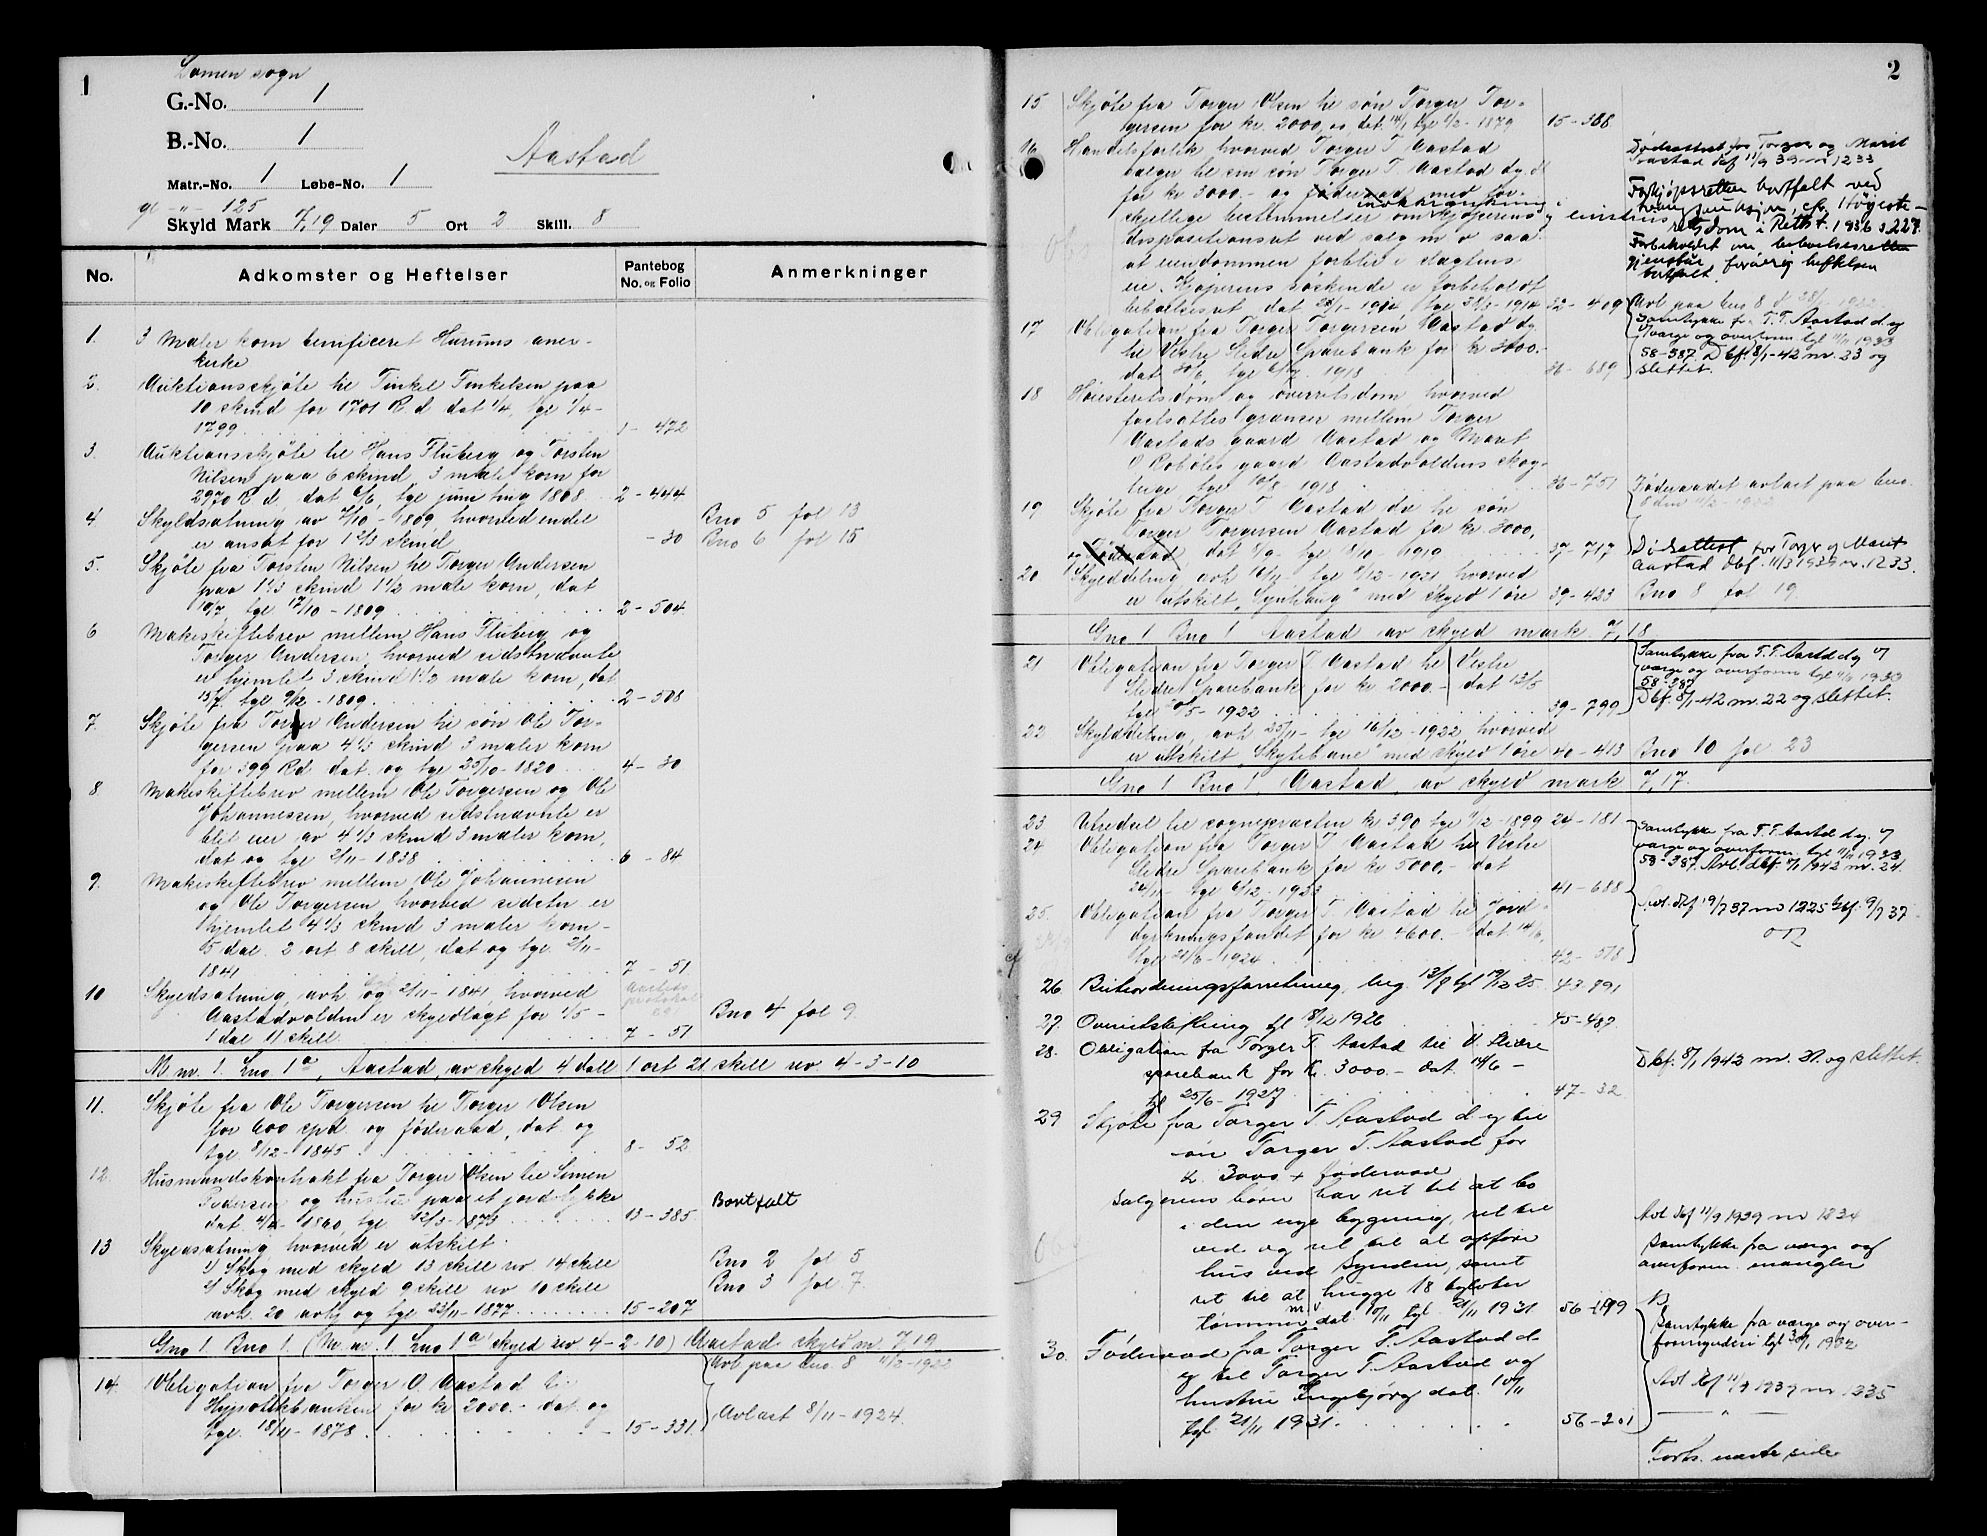 1
Lomen sogn
G.-No. 1
B.-No. 1
Aastad
Matr.-No. 1 Løbe-No. 1
gl -"- 125
Skyld Mark 7,19 Daler 5 Ort 2 Skill. 8
No. Adkomster og Heftelser Pantebog No. og Folio Anmerkninger
1. 3 Maler korn benificeret Hurums aner-
kirke
2. Auktionsskjøte til Tinkel Tinkelsen paa
10 skind for 1701 R.d dat 1/4, tgl 1/4-
1799 1 - 472
3. Auktionsskjøte til Hans Fluberg og Torsten
Nilsen paa 6 skind 3 male korn for
2970 R.d, dat 6/6, tgl juni ting 1808 2 - 444
4. Skyldsætning av 7/10 - 1809, hvorved endel Bno 5 fol 13
er ansat for 1 1/3 skind - 30 Bno 6 fol 15
5. Skjøte fra Torsten Nilsen til Torger Andersen
paa 1 1/3 skind 1 1/2 male korn, dat
10/7, tgl 17/10 - 1809 2 - 504
6 Makeskiftebrev mellem Hans Fluberg og
Torger Andersen, hvorved sidstnævnte
er hjemlet 3 skind 1 1/2 male korn, dat
13/7, tgl 9/12 - 1809 2 - 508
7. Skjøte fra Torger Andersen til søn Ole Tor-
gersen paa 4 1/3 skind 3 maler korn
for 399 Rd dat. og tgl 25/10 - 1820 4 - 30
8 Makeskiftebrev mellem Ole Torgersen og Ole
Johannessen, hvorved sidstnævnte er
blit eier av 4 1/3 skind 3 maler korn,
dat og tgl 2/11 - 1838 6 - 84
9. Makeskiftebrev mellem Ole Johannesen
og Ole Torgersen hvorved sidste er
hjemlet 4 1/3 skind 3 maler korn -
5 dal. 2 ort 8 skill, dat og tgl. 2/11 -
1841 7 - 51
10 Skyldsætning, avh og 2/11 - 1841, hvorved
Aastadvolden er skyldlagt for 1/5 - Bno 4 fol 9
1 dal 11 skill 7 - 51
M nr. 1. Lno 1a, Aastad, av skyld 4 dall 1 ort 21 skill rev 4-3-10
11. Skjøte fra Ole Torgersen til Torger Olsen
for 600 spd. og føderaad, dat. og
tgl 8/12 - 1845 8 - 52
12. Husmandskontrakt fra Torger Olsen til Simen
Pedersen og hustru paa et jordstykke Bortfalt
dat 4/2 - 1860 tgl 12/3 - 1873 13 - 385
13 Skyldsætning hvorved er utskilt
1) Skog med skyld 13 skill rev 14 skill Bno 2 fol 5
2) Skog med skyld 9 skill rev 10 skill Bno 3 fol 7.
avh. 20 avhj og tgl 23/11 - 1877 15 - 207
Gno 1. Bno 1. (M. nr. 1. Lno 1a skyld rev 4-2-10) Aastad skyld m 7,19
Utb paa bno. 8 11/2 - 1922
14. Obligation fra Torger O. Aastad til
Hypotekbanken for kr 2000.- dat. og Avlæst 8/11 - 1924.
tgl. 18/11 - 1878. 15 - 331
2
15 Skjøte fra Torger Olsen til søn Torger Tor-
gersen for kr. 2000,00, dat. 14/1 tgl 1/2 - 1879 15 - 368
16. Handelsforlik hvorved Torger T. Aastad
sælger til sin søn Torger T Aastad dy d
for kr 3000.- og føderaad med for-
skjellige bestemmelser om indskrænkning i kjøperens
dispositionsret ved salg m v saa
at eiendommen forblir i slægtens
eie. Kjøperens søskende er forbeholdt
beboelsesret dat 28/1 - 1914 tgl 28/3 - 1914 32 - 409
Dødsattest for Torger og Marit
Aastad dbf 11/9 39 nr 1233
Forkjøpsretten bortfalt ved
tvangsauksjon, cfr. Høyeste-
rets dom i Retst. 1936 s 227.
Forbeholdet om beboelsesretten
bortfalt. forøvrig heftelsen
17 Obligation fra Torger Torgersen Aastad dy
til Vestre Slidre Sparebank for kr 3000.-
dat 30/6, tgl 6/7 1918 36 - 689
Utb paa bno 8
Samtykke fra T.T. Aastad d.y
verge og overform tgl 11/11 1933
58-387. Dbf. 8/1-42 nr. 23 og
slettet.
18 Høiesteretsdom og overretsdom hvorved
fastsættes grænser mellem Torger
Aastads gaard Aastad og Marit
O Robøles gaard Aastadvoldens skog-
teige tgl 10/8 1918 36 - 751
19 Skjøte fra Torger T Aastad d.æ til søn
Torger Torgersen Aastad for kr. 3000,
og Føderaad dat 9/9 tgl 18/10 - 1919 37 - 717
Føderaadet avlæst paa bno.
8 den 11/2 1922
Dødsattest for Torger og Marit
Aastad dbf. 11/3 1939 nr. 1233.
20 Skylddeling avh 16/11 tgl 8/12 - 1921 hvorved
er utskilt "Synhaug" med skyld 1 øre 39 - 423 Bno 8 fol 19.
Gno 1 Bno 1 Aastad av skyld mark 7,18
21 Obligation fra Torger T Aastad til Vestre
Slidre Sparebank for kr 2000.- dat 13/5
tgl 20/5 - 1922 39 - 799
Samtykke fra T.T. Aastad dy og
verge og overform tgl 11/11 1933
58-387
Dbf. 8/1-42 nr. 22 og slettet.
22 Skylddeling, avh 25/11 tgl 16/12 - 1922, hvorved
er utskilt "Skytebane" med skyld 1 øre 40 - 413 Bno 10 fol 23
Gno 1 Bno 1, Aastad, av skyld mark 7,17.
23 Utredsel til sognepræsten kr 390 tgl 11/2 - 1899 24 - 181
24 Obligation fra Torger T Aastad til Vestre
Slidre Sparebank for kr 5000,- dat
24/11 tgl 6/12 - 1923 41 - 688
Samtykke fra T.T. Aastad dy. og
verge og overform. tgl 11/11 1933
58-387 Avl. dbf. 8/1 1942 nr. 24.
25. Obligation fra Torger T. Aastad til Jord-
dyrkningsfondet for kr 4600.- dat 14/6,
tgl 21/6 - 1924 42 - 518
Avl. dbf 19/7 37 nr 1225
26. Beitordningsforretning, beg. 13/9 tgl 19/12 25. 43-991
27. Overutskiftning tgl 8/12 1926 45-487
28. Obligation fra Torger T. Aastad til V. Slidre
sparebank for kr. 3000.- dat. 14/6 - Dbf. 8/1 1942 nr. 21 og slettet.
tgl 25/6 - 1927 47 - 32
29 Skjøte fra Torger T. Aastad d. e til
søn Torger T. Aastad for
kr. 3000 + føderaad
Sælgerens børn har ret til at bo
i den nye bygning, ret til
ved og ret til at opføre
hus ved Synden, samt
ret til at hugge 18 tylvter
tømmer dat 10/11 tgl. 21/11 1931 56-199
Avl dbf 11/9 1939 nr 1234
Samtykke fra verge og
overform. mangler
30. Føderaad fra Torger T. Aastad d.
y til Torger T. Aastad og
hustru Ingebjørg dat. 10/11
tgl 21/11 1931. 56-201
Samtykke fra verge og over-
formynderi tgl 30/1 1932
Avl dbf 11/9 1939 nr 1235
Forts. næste side